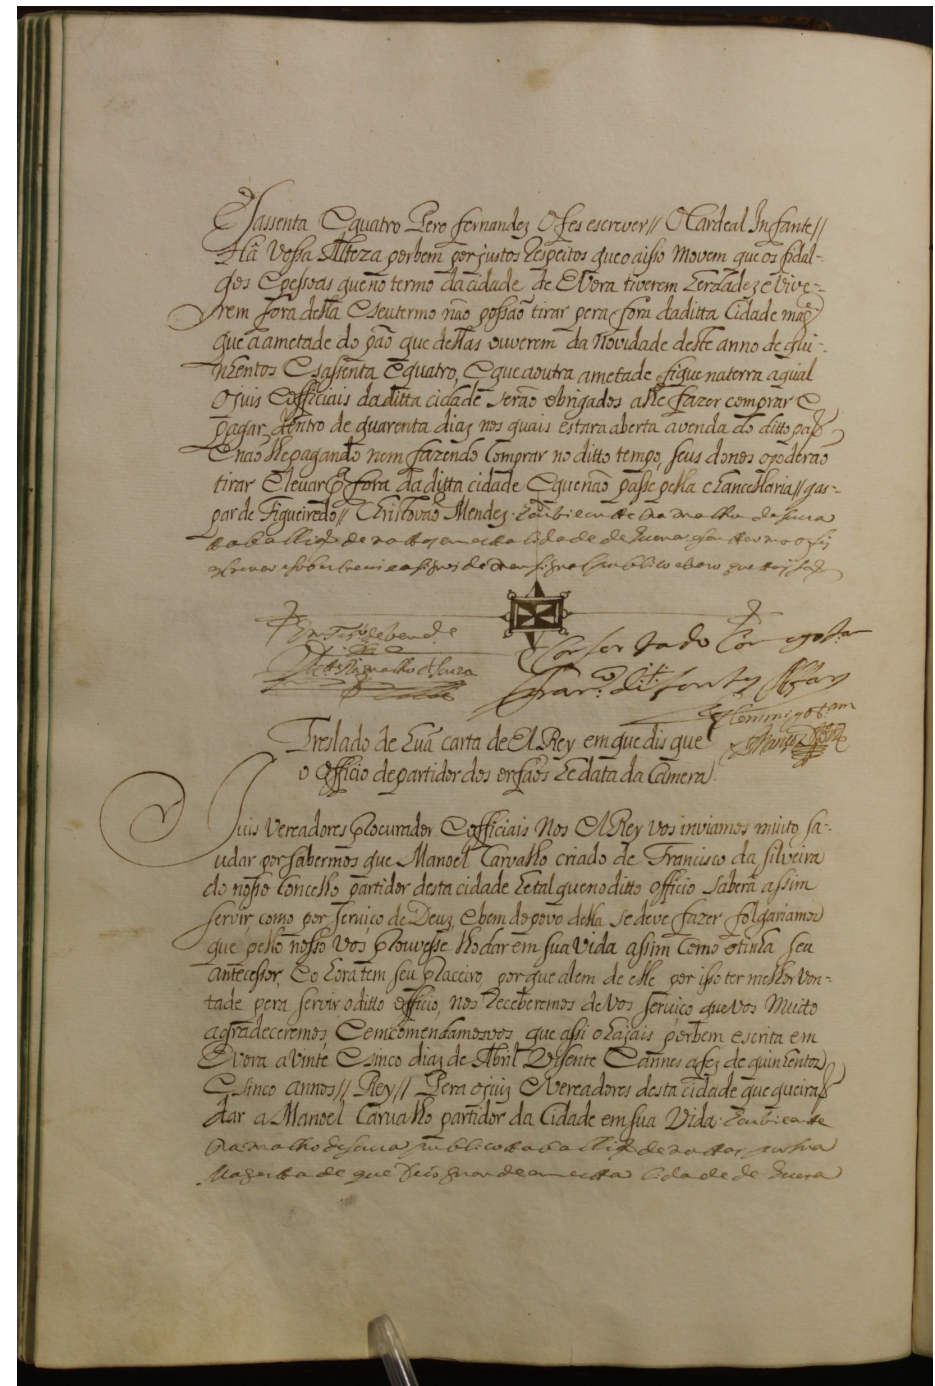 E sassenta E quatro Pero fernandez O fes escrever// O Cardeal Infante//
Ha Vossa Alteza por bem por justos Respeitos que o a isso Movem que os fidal-
gos E pessoas que no termo da cidade de Evora tiverem herdades e vive-
rem fora della E seu termo não possão tirar pera fora da ditta Cidade mais
que a ametade do pão que dellas ouverem da Novidade deste anno de qui-
nhentos E sassenta E quatro, E que a outra ametade fique na terra a qual
o juis E officiais da ditta cidade serão obrigados a lhe fazer comprar E
pagar dentro de quarenta dias nos quais estara aberta a venda do ditto pão
E não lhe pagando nem fazendo Comprar no ditto tempo, seus donos o poderão
tirar E levar pera fora da ditta cidade E que não passe pella chancellaria// gas-
par de Figueiredo// Christovão Mendez
taballião de nottas em esta Cidade de Evora
Consertado Comigo
Comigo
Treslado de huã carta de El Rey em que dis que
o Officio de partidor dos orfaõs he data da Camera.
Juis Vereadores procurador E officiais Nos El Rey vos inviamos muito sa-
udar por sabermos que Manoel Carvalho criado de Francisco da silveira
do nosso Concelho partidor desta cidade he tal que no ditto Officio sabera assim
servir como por serviço de Deus, E bem do povo della se deve fazer folgariamos
que pello nosso Vos prouvesse lho dar em sua Vida assim como o tinha seu
antecessor, E o hora tem seu parceiro porque alem de elle por isso ter melhor von-
tade pera servir o ditto officio, nos Receberemos de Vos serviço que vos Muito
agradeceremos E emcomendamosvos que assi o hajais por bem escrita em
Evora a vinte E sinco dias de Abril Visente Cannes a fez de quinhentos
E sinco annos// Rey// Pera o juiz E Vereadores desta cidade que queirão
dar a Manoel Carvalho partidor da Cidade em sua Vida.
Ramalho de sousa publico taballião de nottas por sua
Magestade que Deos guarde em esta Cidade de Evora